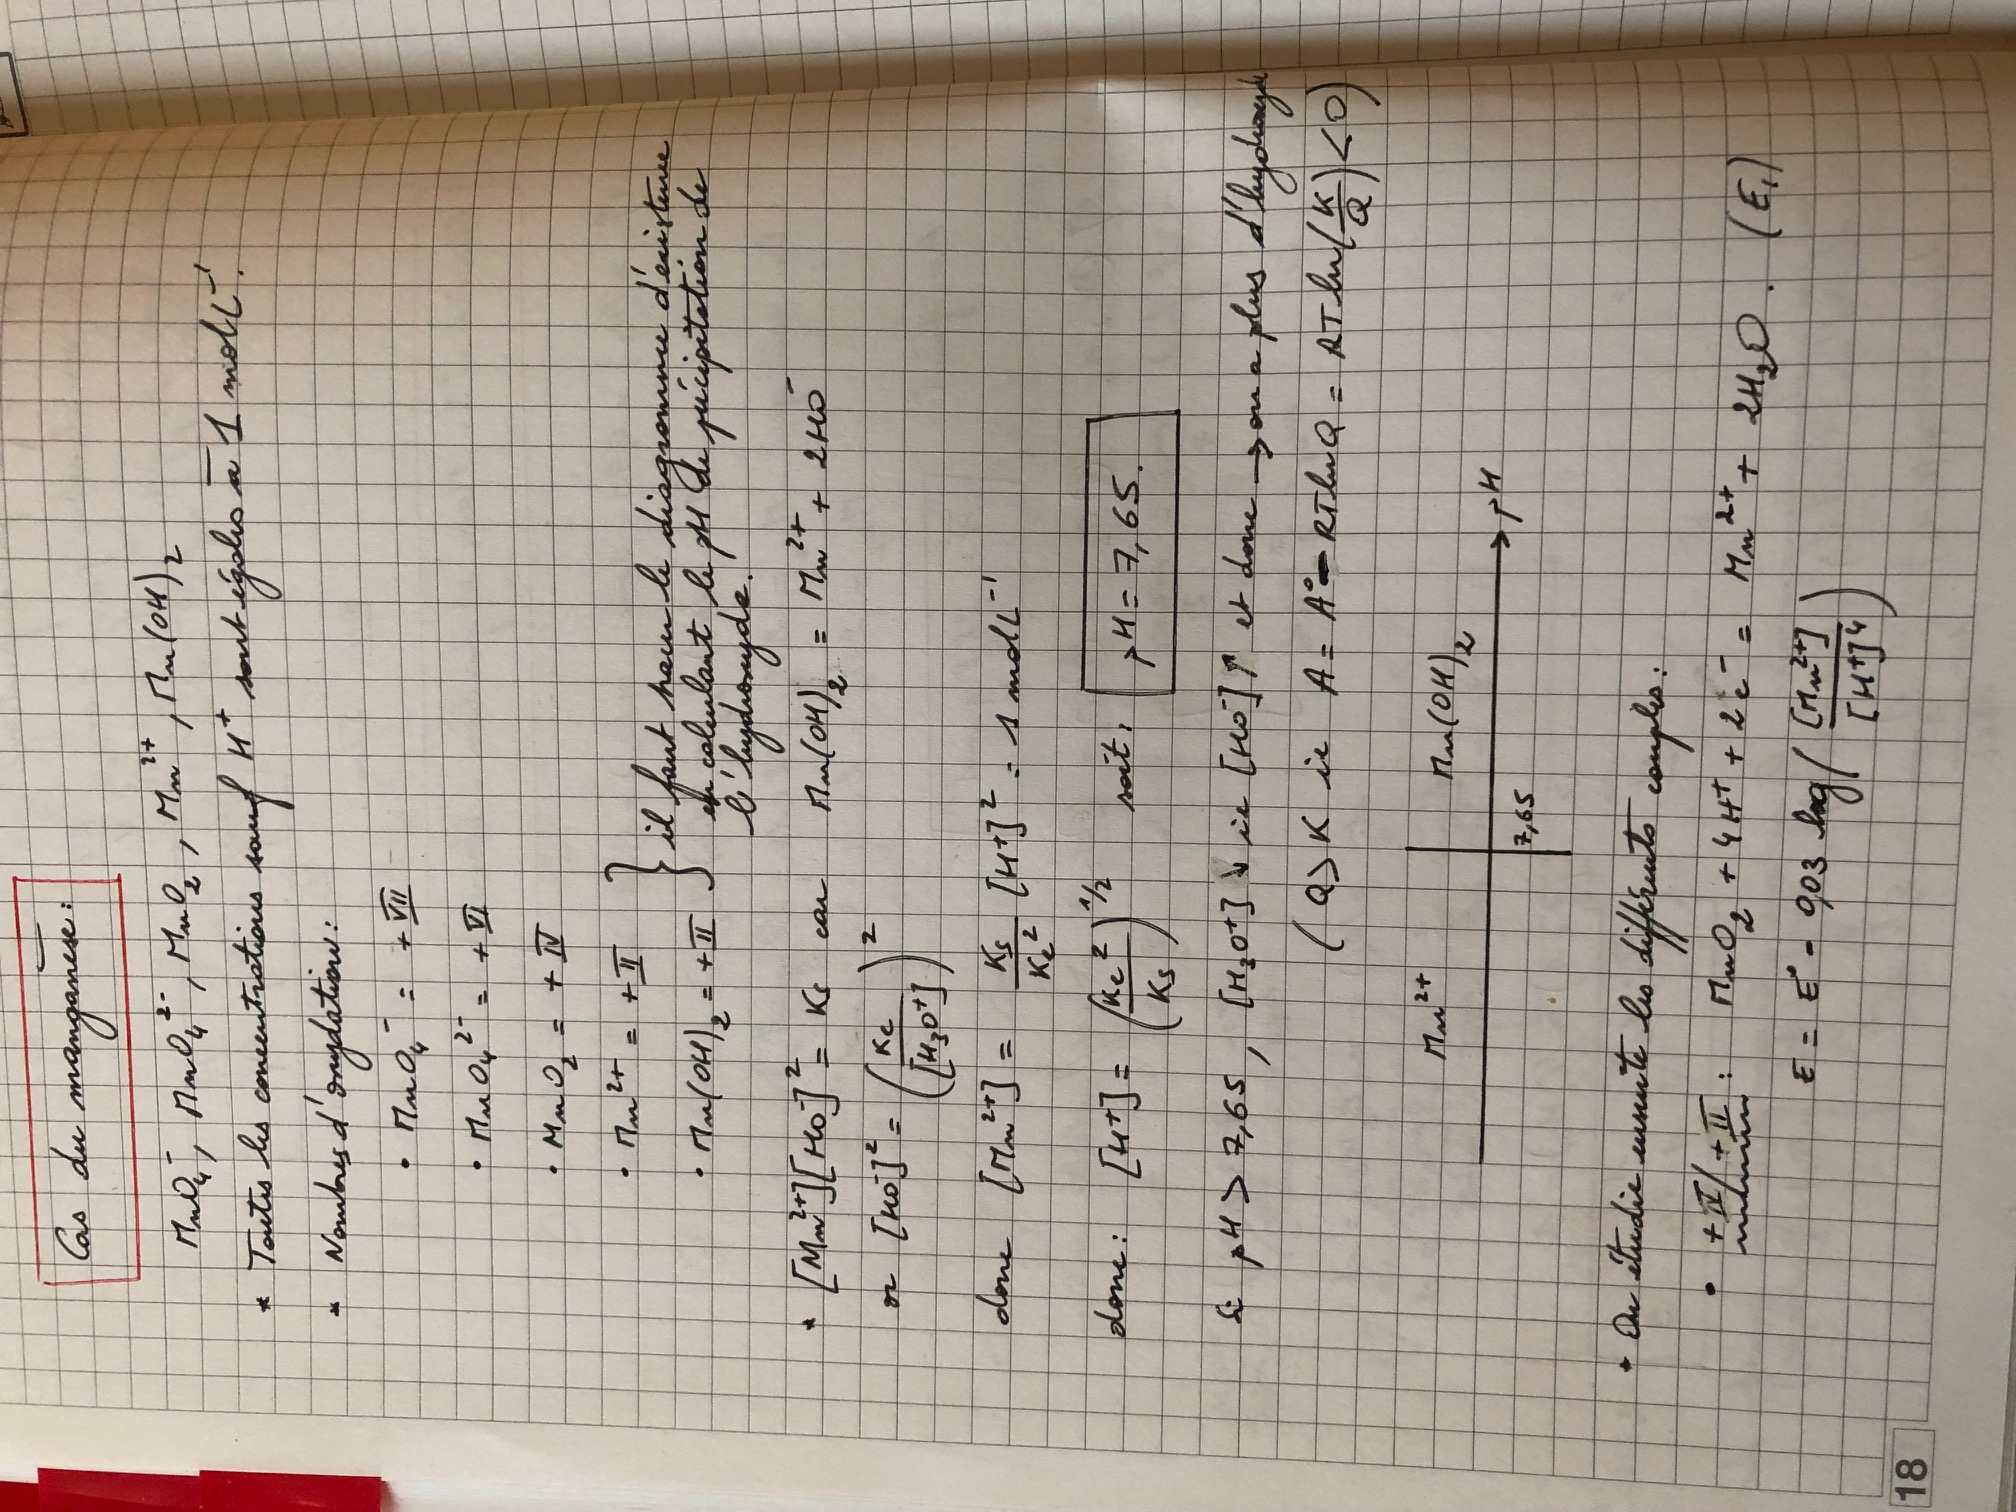 Cas du manganèse :
MnO₄⁻, MnO₄²⁻, MnO₂, Mn²⁺, Mn(OH)₂
* Toutes les concentrations sauf H⁺ sont égales à 1 mol L⁻¹.
* Nombres d'oxydation :
• MnO₄⁻ = +VII
• MnO₄²⁻ = +VI
• MnO₂ = +IV
• Mn²⁺ = +II
• Mn(OH)₂ = +II
} il faut tracer le diagramme d'existence
en calculant le pH de précipitation de
l'hydroxyde.
* [Mn²⁺][HO⁻]² = Ks car Mn(OH)₂ = Mn²⁺ + 2HO⁻
or [HO⁻]² = (Ke/[H₃O⁺])²
donc [Mn²⁺] = Ks/Ke² [H⁺]² = 1 mol L⁻¹
donc : [H⁺] = (Ke²/Ks)^1/2 soit : pH = 7,65.
Si pH > 7,65, [H₃O⁺] ↓ ie [HO⁻] ↑ et donc → on a plus d'hydroxyde
(Q > K ie A = A° - RT ln Q = RT ln(K/Q) < 0)
Mn²⁺ Mn(OH)₂
pH
7,65
• On étudie ensuite les différents couples :
• +IV/+II : MnO₂ + 4H⁺ + 2e⁻ = Mn²⁺ + 2H₂O. (E₁)
E = E° - 0,03 log([Mn²⁺]/[H⁺]⁴)
18